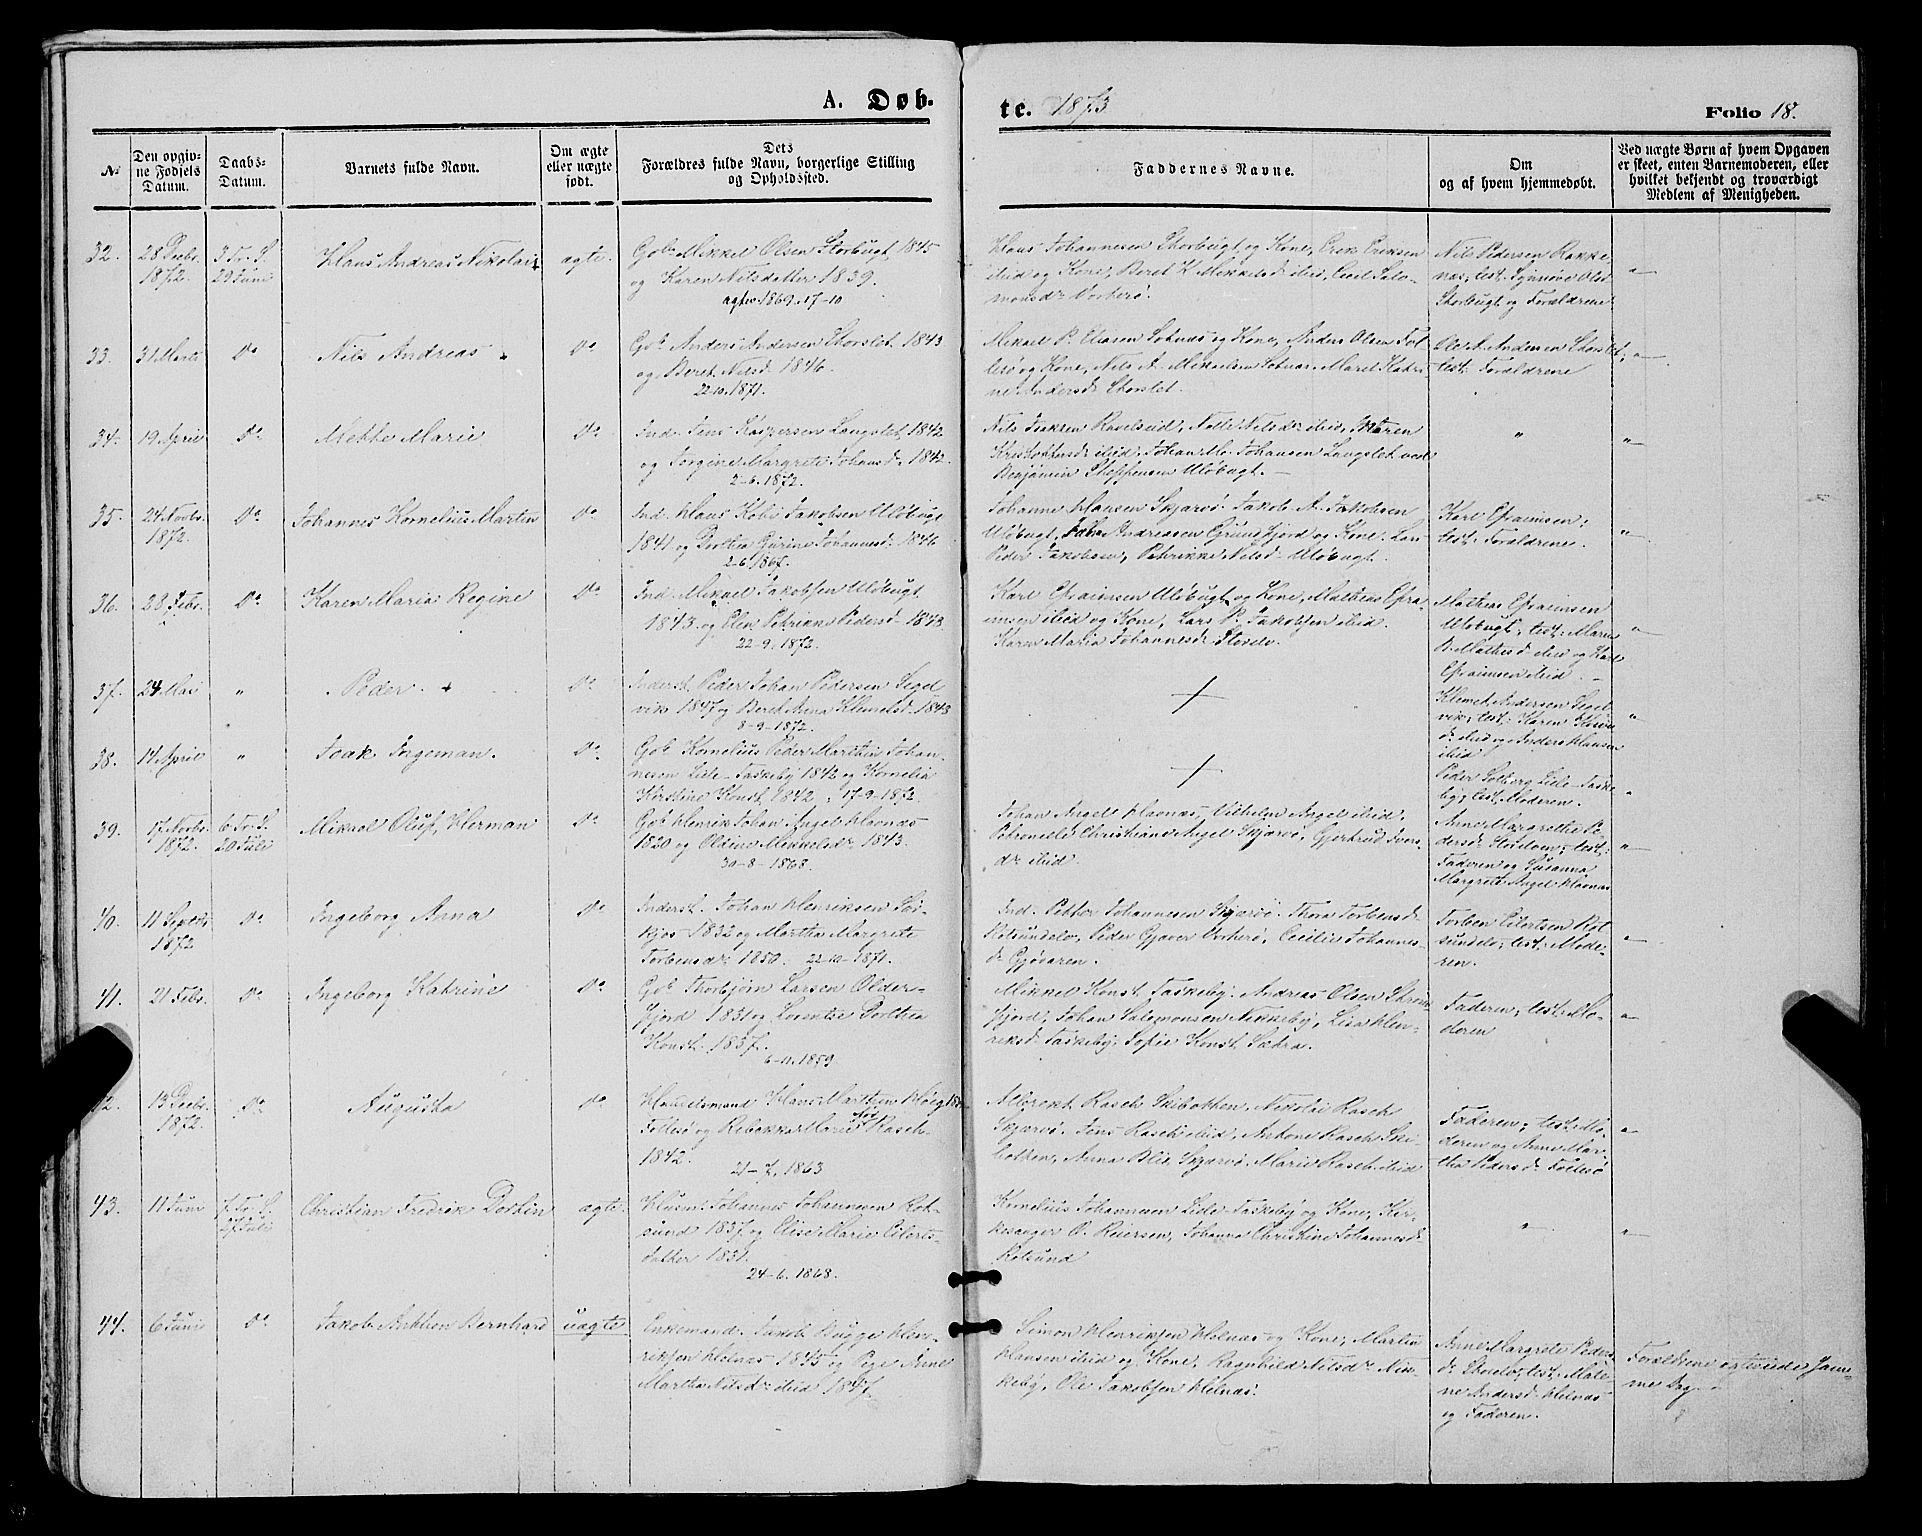 A. Døb-
te. 1873
Folio 18.
№
Den opgiv-
ne Fødsels
Datum.
Daabs-
Datum.
Barnets fulde Navn.
Om ægte
eller uægte
født.
Dets
Forældres fulde Navn, borgerlige Stilling
og Opholdssted.
Faddernes Navne.
Om
og af hvem hjemmedøbt.
Ved uægte Børn af hvem Opgaven
er skeet, enten Barnemoderen, eller
hvilket bekjendt og troværdigt
Medlem af Menigheden.
32.
28 Decbr.
1872.
3 Tr. S.
29 Juni
Hans Andreas Nikolai
ægte.
Gbr Mikkel Olsen Storbugt 1845
og Karen Nilsdatter 1839.
agtev. 1869. 17-10
Hans Johannesen Storbugt og Kone, Erik Eriksen
ibid og Kone, Beret K. Mikkelsdr ibid,
Vorterø.
Nils Pedersen Rakke-
næs, test. Synnøve Olsd
Storbugt og Forældrene
"
33.
31 Marts
Do
Nils Andreas
Do
Gbr Anders Andersen Storslet 1843
og Beret Nilsd. 1846.
22-10. 1871.
og Kone, Anders Olsen Fol-
lesø og Kone, Nils A. Mikkelsen Maret Katri-
ne Andersdr Storslet.
Ole A. Andersen Storslet,
test: Forældrene
"
34.
19 April
Do
Mette Marie
Do
Ind. Jens Langslet, 1842
og Jorgine Margrete Johansd. 1842.
2-6. 1872.
Nils Isaksen Ravelseid, Nille Nilsdr ibid, Karen
Kristoffersdr ibid, Johan Mo. Johansen Langslet ved
Benjamin Steffensen Uløbugt.
"
"
35.
24 Novbr.
1872.
Do
Johannes Kornelius Martin
Do
Ind. Hans Jakobsen Uløbugt
1841 og Dorthea Gurine Johannesd: 1846
2-6. 1867.
Johanne Hansen Skjærvø. Jakob A. Jakobsen
Uløbugt, Andreassen Grundfjord og Kone. Lars
Peder Jakobsen, Petrikke Nilsd. Uløbugt.
Karl Efraimsen;
test: Forældrene.
"
36.
28 Febr.
Do
Karen Maria Regine
Do
Ind. Mikael Jakobsen Uløbugt
1843. og Elen Petriane Pedersd. 1843
22-9. 1872.
Karl Efraimsen Uløbugt og Kone, Mathias Efra-
imsen ibid og Kone, Lars P. Jakobsen ibid.
Karen Maria Johannesdr
Mathias Efraimsen
Uløbugt, test: Maren
B. Mathisd. ibid og Karl
Efraimsen ibid.
"
37.
24 Mai
"
Peder
Do
Inderst Peder Johan Pedersen Segel-
vik 1847 og Beret Anna Klemetsd. 1843
8-9. 1872.
Klemet Andersen Segel-
vik, test: Karen
dr ibid og Anders Hansen
ibid
"
38.
14 April
"
Isak Ingeman.
Do
Gbr Kornelius Peder Marthin Johan-
nesen Lille-Taskeby 1842 og Kornelia
Kirstine Konst. 1842, 17-9-1872
Peder Solberg Lille-Taske-
by, test. Moderen.
"
39.
17 Novbr.
1872.
6 Tr. S.
20 Juli
Mikael Oluf Herman
Do
Gbr Henrik Johan Angel Havnæs
1820 og Oldine Mikkelsdr 1843.
30-8-1868.
Johan Angel Havnæs, Vilhelm Angel ibid,
Petronelle Christiane Angel Skjærvø, Gjertrud Ivers-
dr ibid.
Anne Margrethe Pe-
dersd. test:
Faderen og Susanna
Margrete Angel Havnæs
"
40.
11 Septbr.
1872
Do
Ingeborg Anna
Do
Inderst. Johan Henriksen Sør-
kjos 1832 og Martha Margrete
Torbensdr 1850. 22-10-1871.
Ind. Petter Johannesen Skjærvø. Thora Torbensdr
Rotsundelv, Peder Gjæver Vorterø, Cecilie Johannes-
dr Gjøvaren.
Torben Eilertsen Rot-
sundelv, test: Mode-
ren.
"
41.
21 Febr.
Do
Ingeborg Katrine
Do
Gbr Thorbjørn Larsen Older-
fjord 1831 og Lorentse Dorthea
Konst. 1837.
6-11. 1859
Mikkel Konst Taskeby. Andreas Olsen
fjord, Johan Salomonsen Nikkeby, Lisa Hen-
riksd. Taskeby, Sofie Konst
Faderen, test: Mo-
deren
"
42.
13 Decbr.
1872
Do
Augusta
Do
Handelsmand Hans Marthin Høeg
Follesø og Rebekka Marie Rasch
1842.
21-7. 1863
Albrekt Rasch Skibotten, Nikolai Rasch
Skjærvø. Jens Rasch ibid, Antone Rasch Ski-
botten, Anna Skjærvø, Marie Rasch ibid
Faderen, test: Mo-
deren og Anne Mar-
tha Pedersdr Follesø
"
43.
11 Juni
7 Tr. S.
27 Juli
Christian Fredrik Dortin
ægte.
Husm. Johannes Johannesen Rot-
sund 1837. og Elise Marie Eilerts-
datter 1831.
24-6. 1868.
Kornelius Johannesen Lille-Taskeby og Kone, Kir-
kesanger O. Reiersen, Johanna Christine Johannesdr
Rotsund
"
"
44.
6 Juni
Do
Jakob Anthon Bernhard
uægte
Enkemand. Jakob Bugge Hen-
riksen Helnæs 1845 og Pige Anne
Martha Nilsdr ibid 1847.
Simon Henriksen Helnæs og Kone, Martin
Hansen ibid og Kone, Ragnhild Nilsdr Nik-
keby, Ole Jakobsen Helnæs.
Anne Margrete Peders-
dr test: Male-
ne Andersd. Helnæs
og Faderen.
Forældrene ægteviede sam-
me Dag.